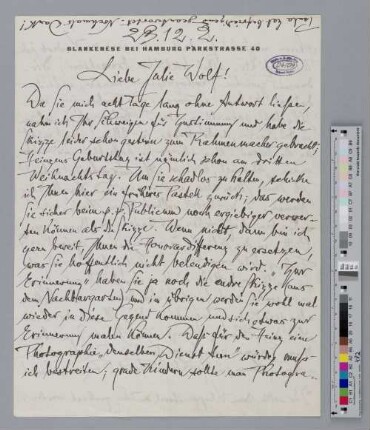 BLANKENESE BEI HAMBURG PARKSTRASSE 40
Liebe Julie Wolf!
Da Sie mich acht Tage lang ohne Antwort ließen,
nahm ich Ihr Schweigen für Zustimmung und habe die
Skizze leider schon gestern zum Rahmenmacher gebracht.
Geburtstag ist nämlich schon am dritten
Weihnachtstag. Um Sie schadlos zu halten, schicke
ich Ihnen hier ein Pastell zurück; das werden
Sie sicher beim p.p. Publicum noch ergiebiger verwer-
ten können als die Skizze. Wenn nicht, dann bin ich
gern bereit, Ihnen die Honorardifferenz zu ersetzen,
was Sie hoffentlich nicht beleidigen wird. "Zur
Erinnerung" haben Sie ja noch die andre Skizze (aus
dem und im übrigen werden Sie wohl mal
wieder in diese Gegend kommen und sich etwas zur
Erinnerung malen können. Daß für den eine
Photographie "denselben Dienst thun" würde, muß
ich bestreiten; grade Kindern sollte man Photogra-